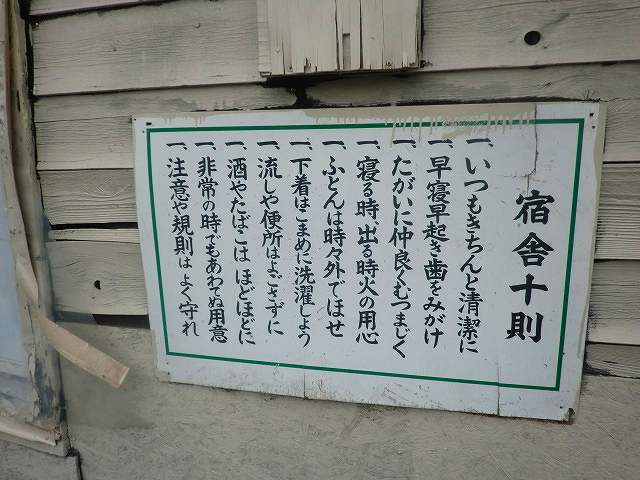 宿舎十則
一、いつもきちんと清潔に
一、早寝早起き歯をみがけ
一、たがいに仲良くむつまじく
一、寝る時、出る時火の用心
一、ふとんは時々外でほせ
一、下着はこまめに洗濯しよう
一、流しや便所はよごさずに
一、酒やたばこは ほどほどに
一、非常の時でもあわてぬ用意
一、注意や規則は よく守れ